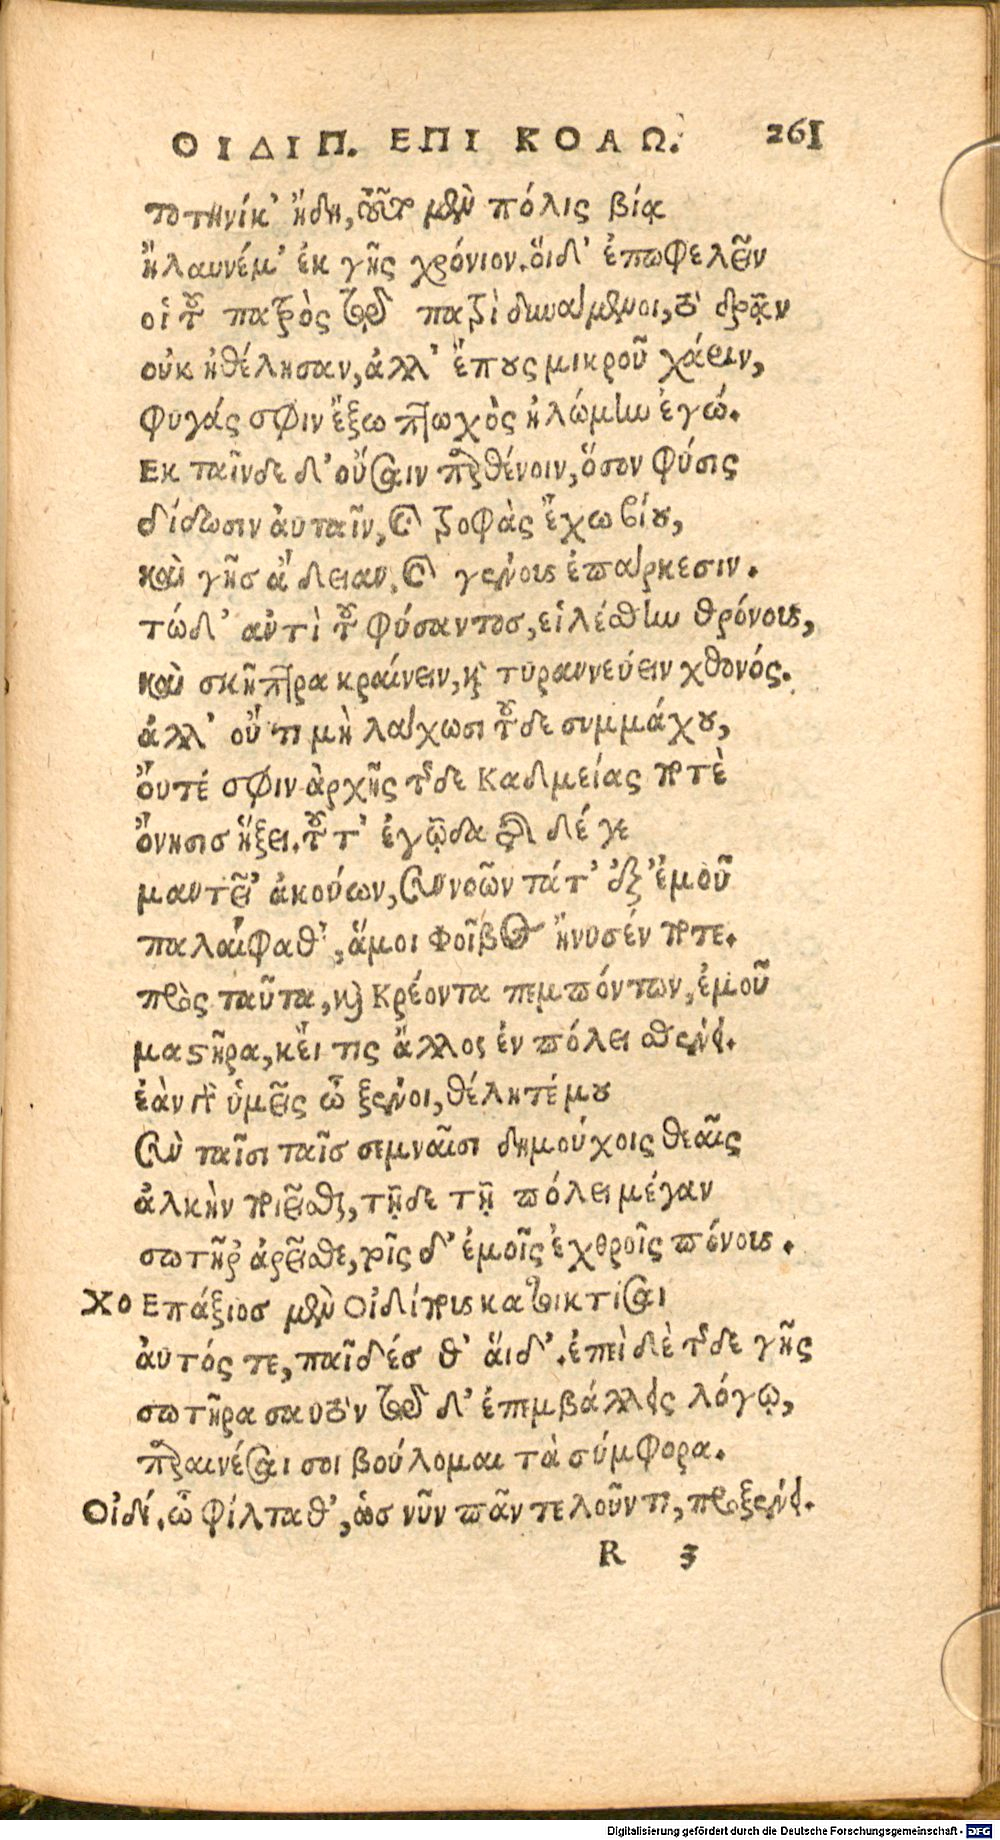 ΟΙΔΙΠ. ΕΠΙ ΚΟΛΩ. 261
τοτηνίκ' ἤδη, τοῦτο μὲν πόλις βίᾳ
ἤλαυνέμ' ἐκ γῆς χρόνιον. ὅιδ' ἐπωφελεῖν
οἱ τοῦ πατρὸς τῷ πατρὶ δυνάμενοι, τὸ δρᾷν
οὐκ ἠθέλησαν, ἀλλ' ἔπους μικροῦ χάριν,
φυγάς σφιν ἔξω πτωχὸς ἠλώμην ἐγώ.
Εκ ταῖνδε δ' οὔσαιν παρθένοιν, ὅσον φύσις
δίδωσιν ἀυταῖν, καὶ τροφὰς ἔχω βίου,
καὶ γῆσ ἄδειαν, καὶ γένους ἐπάρκεσιν.
τώδ' αὐτὶ τοῦ φύσαντοσ, εἱλέσθην θρόνους,
καὶ σκῆπτρα κραίνειν, καὶ τυραννεύειν χθονός.
ἀλλ' οὔ τι μὴ λάχωσι τοῦδε συμμάχου,
ὄυτέ σφιν ἀρχῆς τῆσδε Καδμείας ποτὲ
ὄνησισ ἥξει. τοῦτ' ἐγᾦδα τῆσδέ γε
μαντεῖ' ἀκούων, συννοῶν τάτ' ἐξ ἐμοῦ
παλαίφαθ', ἅμοι Φοῖβος ἤνυσέν ποτε.
πρὸς ταῦτα, καὶ Κρέοντα πεμπόντων, ἐμοῦ
μαστῆρα, κἔι τις ἄλλος ἐν πόλει σθένει.
ἐὰν γὰρ ὑμεῖς ὦ ξένοι, θέλητέ μου
σὺν ταῖσι ταῖσ σεμναῖσι δημούχοις θεαῖς
ἀλκὴν ποιεῖσθαι, τῇδε τῇ πόλει μέγαν
σωτῆρ' ἀρεῖσθε, τοῖς δ' ἐμοῖς ἐχθροῖς πόνους.
ΧΟ Επάξιοσ μὲν Οἰδίπους κατοικτίσαι
ἀυτός τε, παῖδέσ θ' ἅιδ'. ἐπεὶ δὲ τῆσδε γῆς
σωτῆρα σαυτὸν τῷδ' ἐπεμβάλλεις λόγῳ,
παραινέσαι σοι βούλομαι τὰ σύμφορα.
Οἰδί. ὦ φίλταθ', ὡσ νῦν πᾶν τελοῦντι, προξένει.
R 3
Digitalisierung gefördert durch die Deutsche Forschungsgemeinschaft - DFG